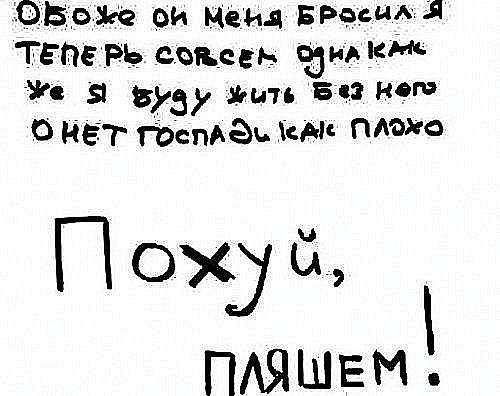 О БОЖЕ ОН МЕНЯ БРОСИЛ Я
ТЕПЕРЬ СОВСЕМ ОДНА КАК
ЖЕ Я БУДУ ЖИТЬ БЕЗ НЕГО
О НЕТ ГОСПАДИ КАК ПЛОХО
Похуй,
ПЛЯШЕМ!